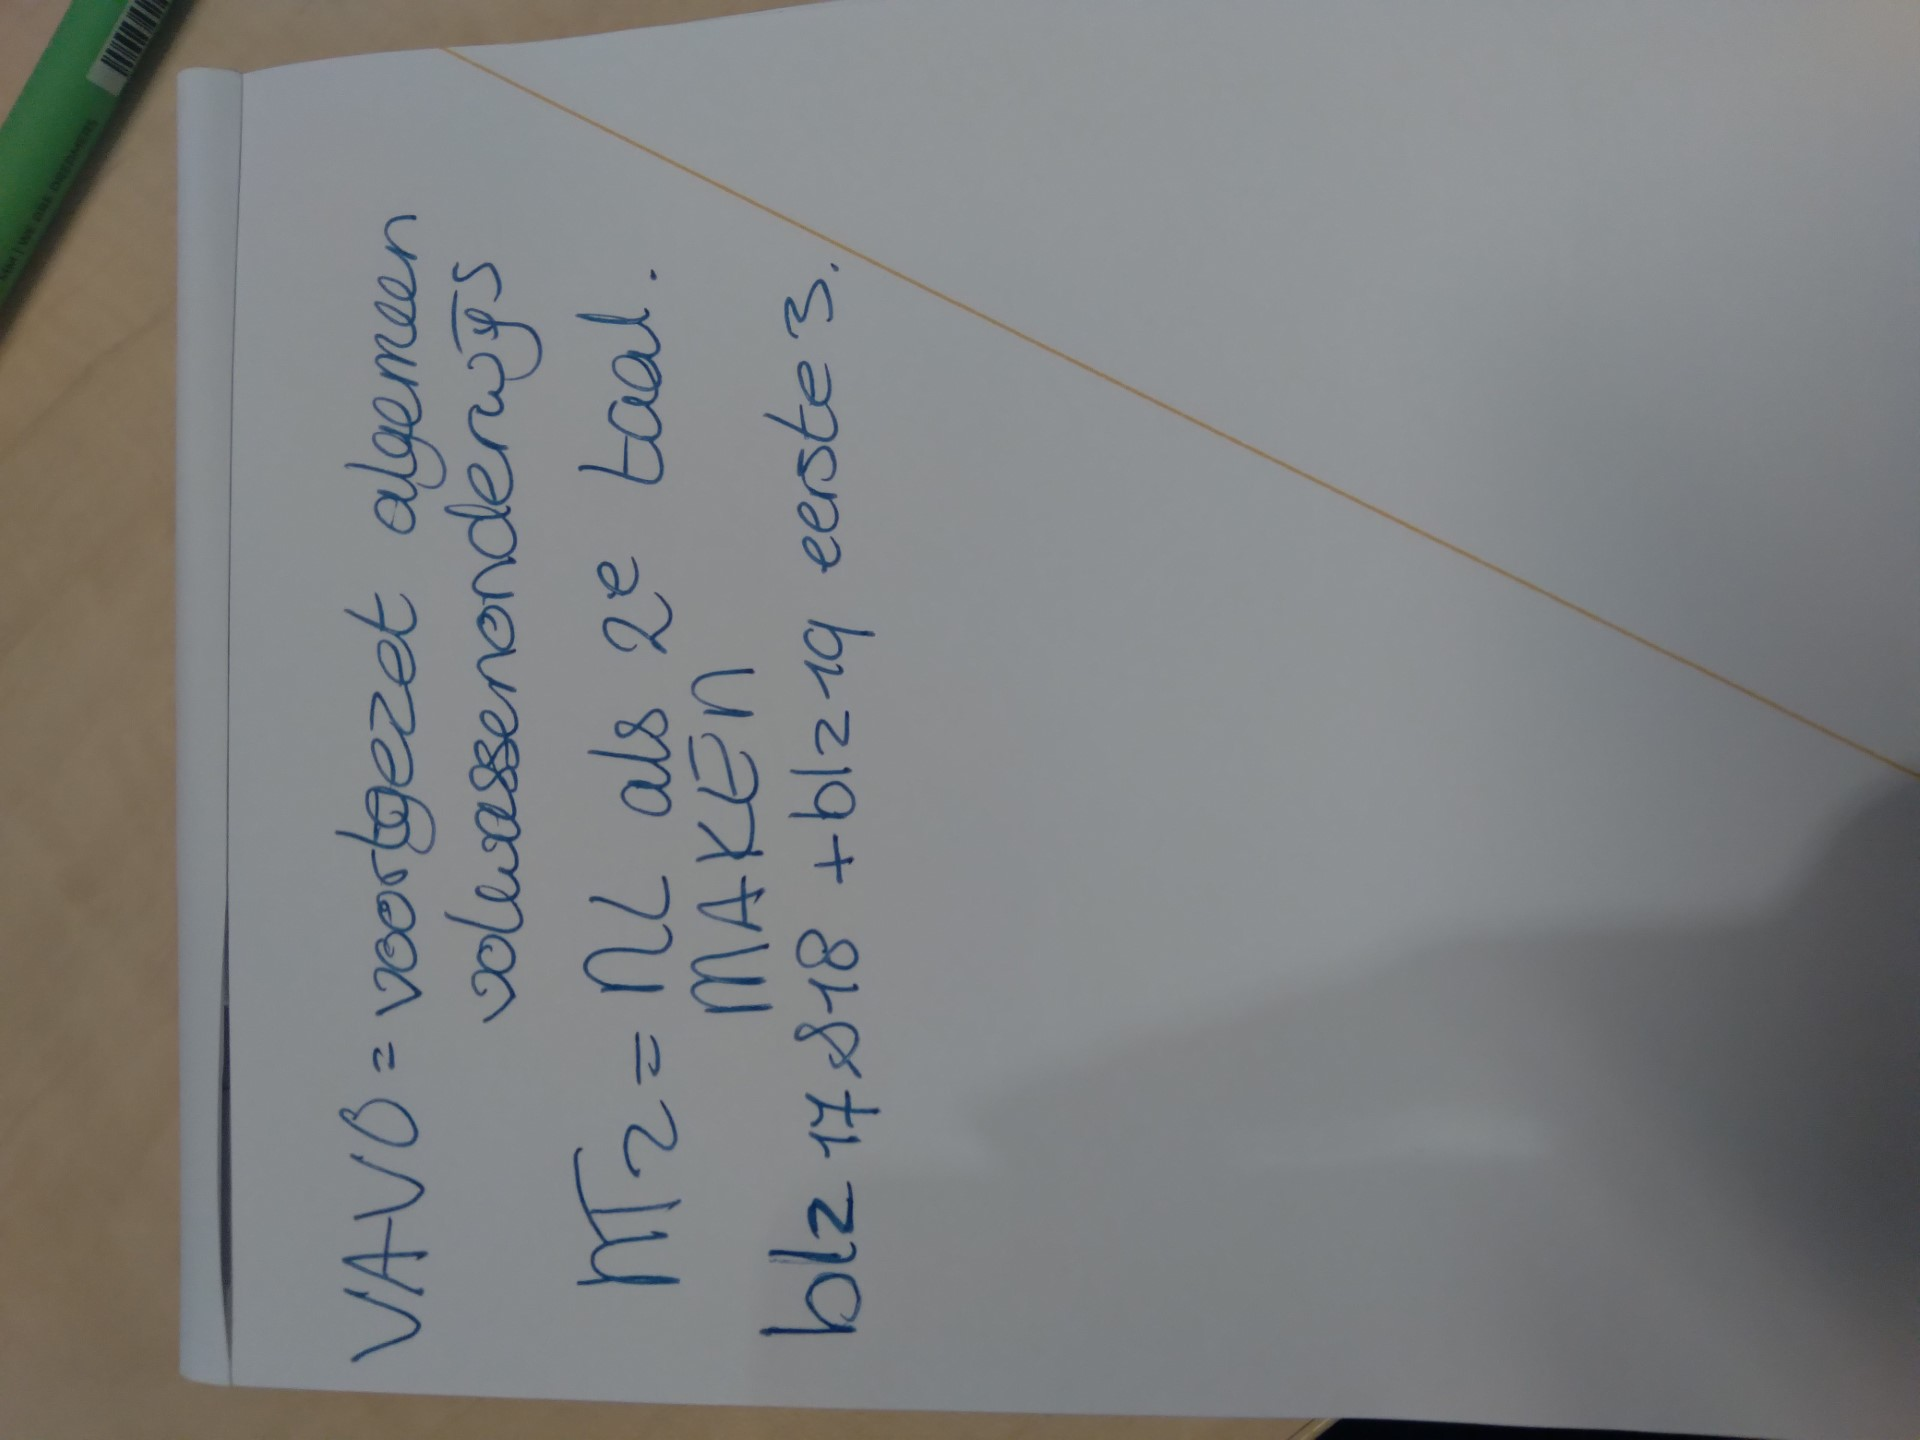 VAVO = voortgezet algemeen
volwassenonderwijs
NT2 = NL als 2e taal.
MAKEN
blz 17 & 18 + blz 19 eerste 3.